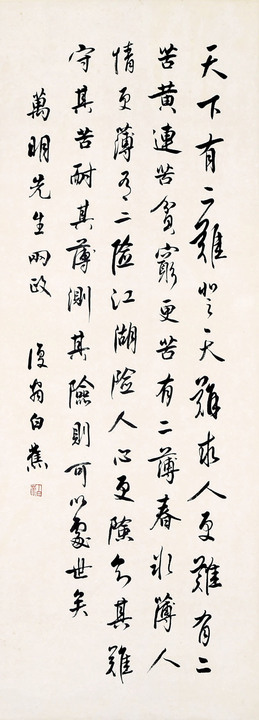 天下有二難登天難求人更難有二
苦黃連苦貧窮更苦有二薄春冰薄人
情更薄有二险江湖險人心更險知其難
守其苦耐其薄測其險則可以處世矣
萬明先生兩政 復翁白蕉